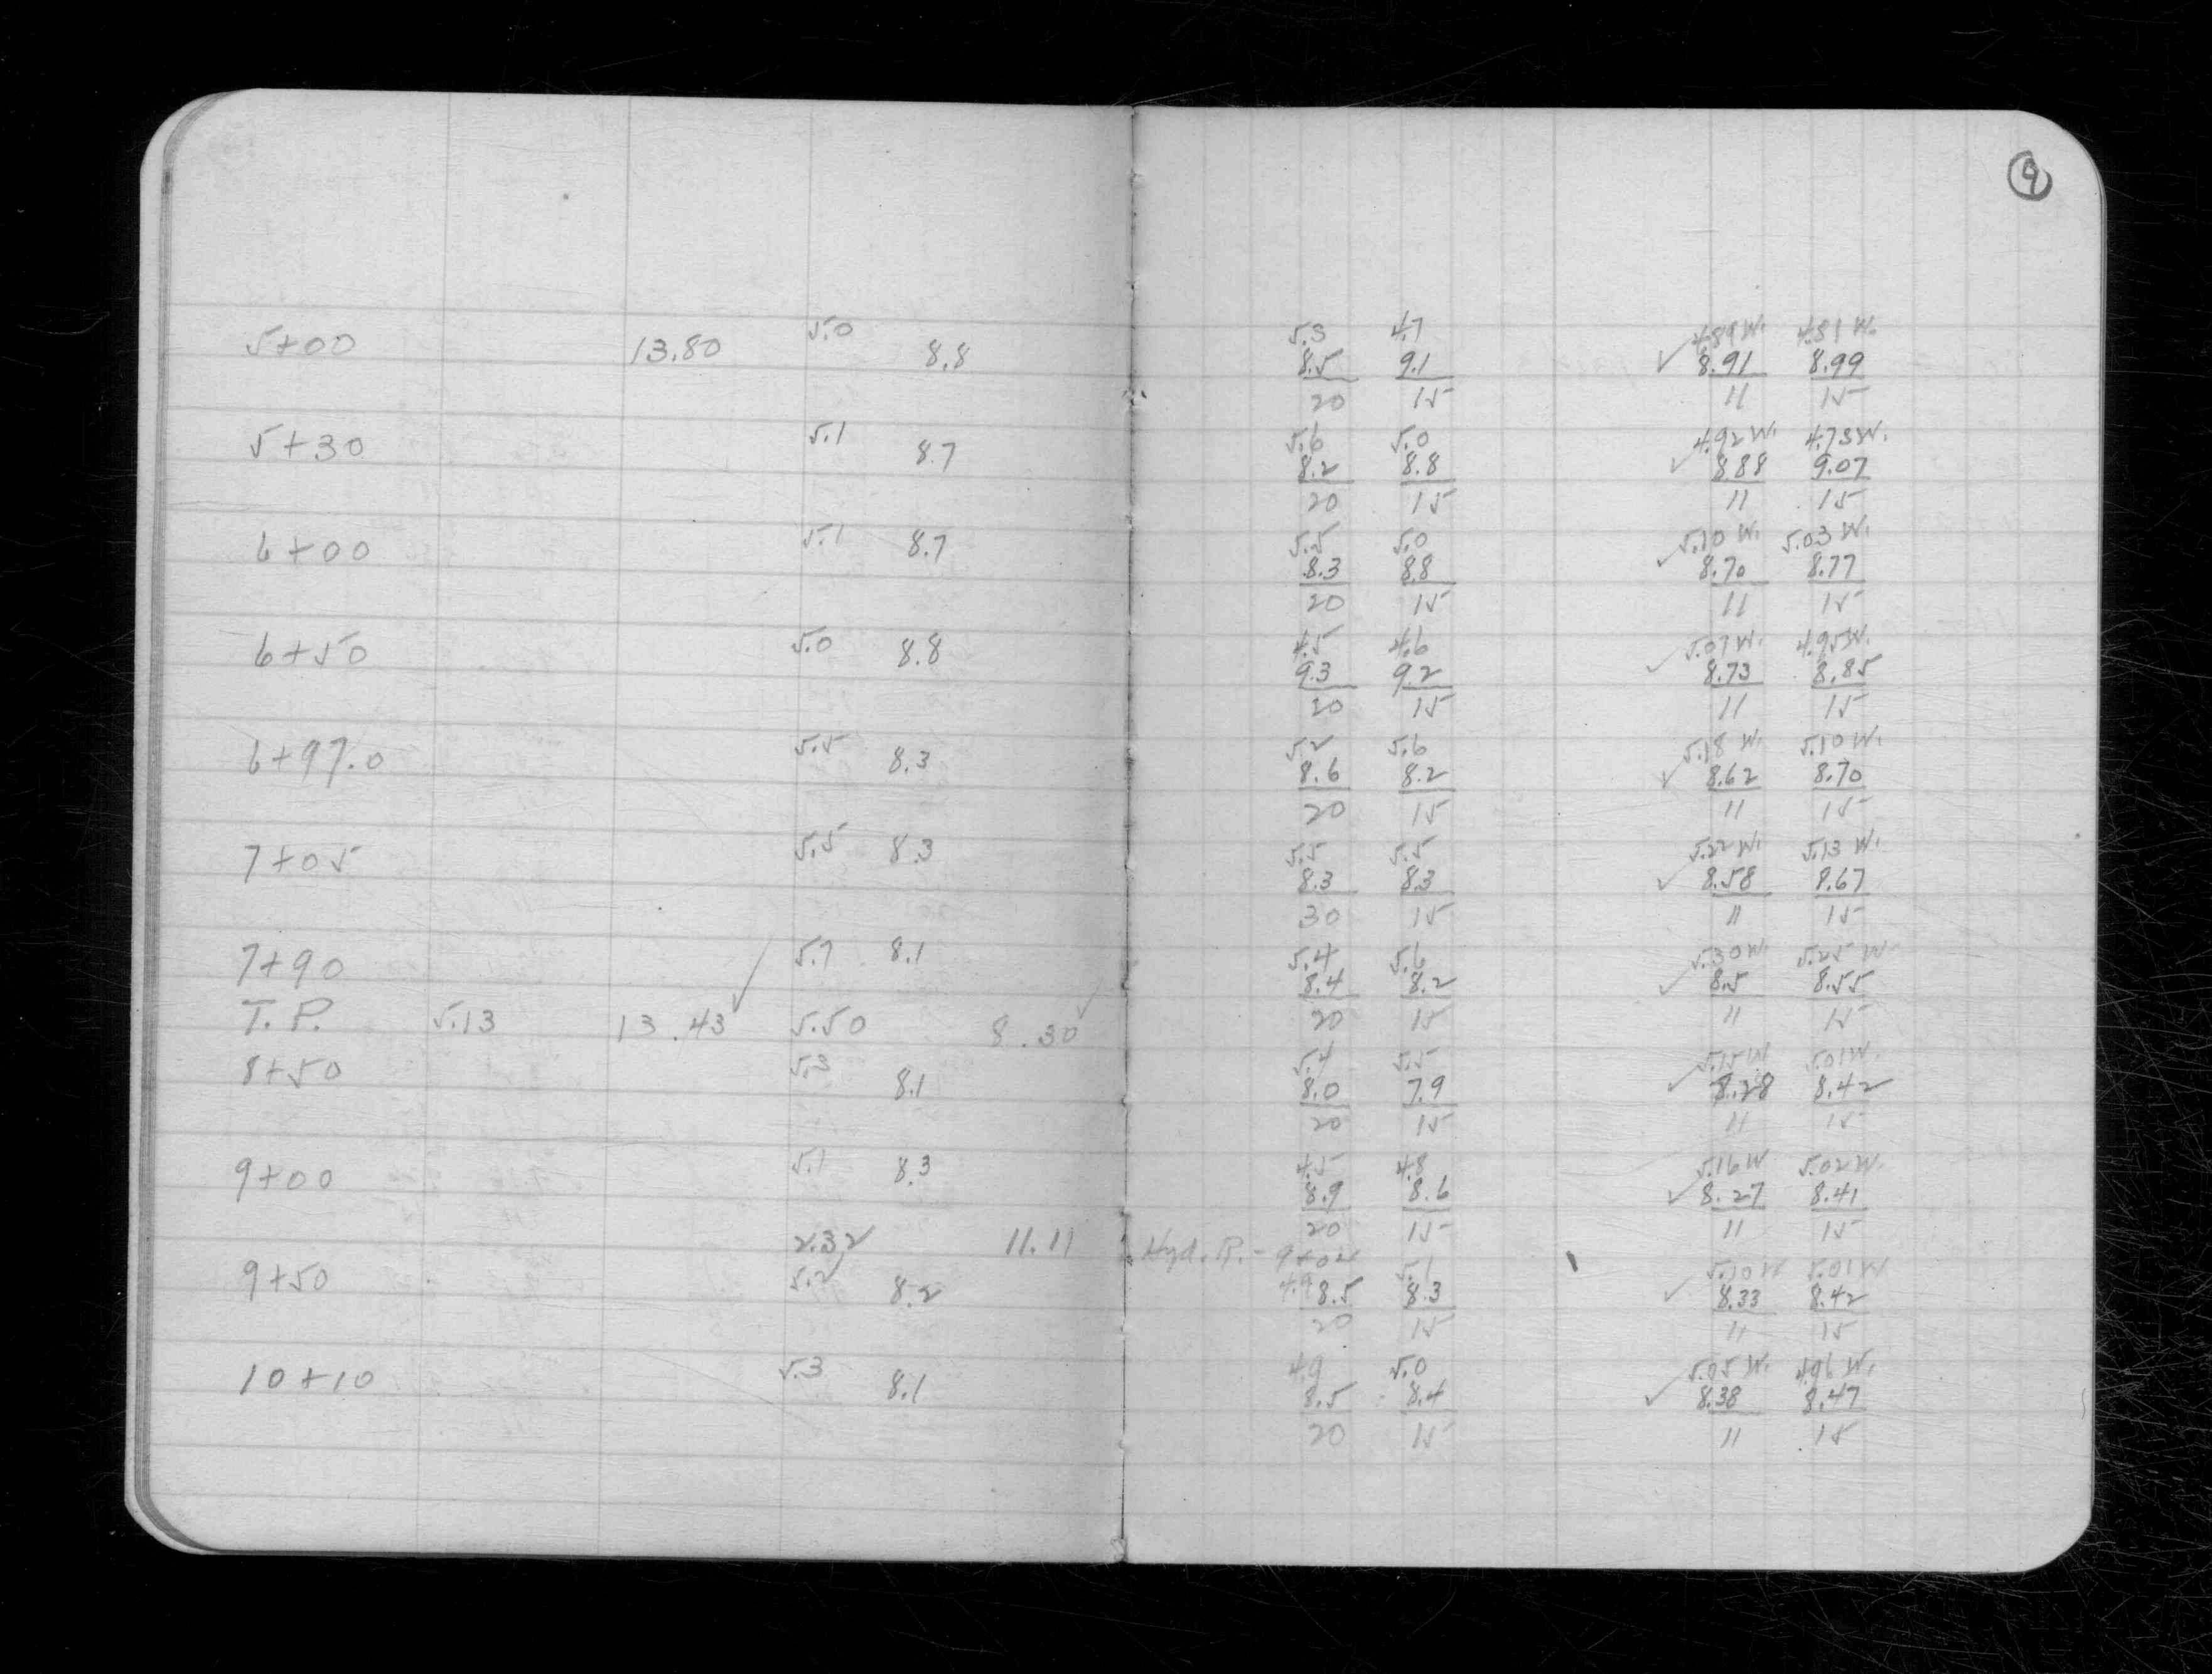 9
5+00 13.80 5.0 8.8
5.3 4.7 4.89 W. 4.81 W.
✓ 8.5 9.1 8.91 8.99
20 15 11 15
5+30 5.1 8.7
5.6 5.0 4.92 W. 4.73 W.
✓ 8.2 8.8 8.88 9.07
20 15 11 15
6+00 5.1 8.7
5.5 5.0 5.10 W. 5.03 W.
✓ 8.3 8.8 8.70 8.77
20 15 11 15
6+50 5.0 8.8
4.5 4.6 5.07 W. 4.95 W.
✓ 9.3 9.2 8.73 8.85
20 15 11 15
6+97.0 5.5 8.3
5.2 5.6 5.18 W. 5.10 W.
✓ 8.6 8.2 8.62 8.70
20 15 11 15
7+05 5.5 8.3
5.5 5.5 5.22 W. 5.13 W.
✓ 8.3 8.3 8.58 8.67
30 15 11 15
7+90 5.7 8.1
5.4 5.6 5.30 W. 5.25 W.
✓ 8.4 8.2 8.5 8.55
20 15 11 15
T.P. 5.13 13.43 ✓ 5.50 8.30 ✓
8+50 5.3 8.1
5.4 5.5 5.15 W 5.01 W.
✓ 8.0 7.9 8.28 8.42
20 15 11 15
9+00 5.1 8.3
4.5 4.8 5.16 W 5.02 W.
✓ 8.9 8.6 8.27 8.41
20 15 11 15
2.32 11.11 Hyd. R. - 9+02
9+50 5.2 8.2
4.9 5.1 5.10 W 5.01 W
✓ 8.5 8.3 8.33 8.42
20 15 11 15
10+10 5.3 8.1
4.9 5.0 5.05 W. 4.96 W.
✓ 8.5 8.4 8.38 8.47
20 15 11 15